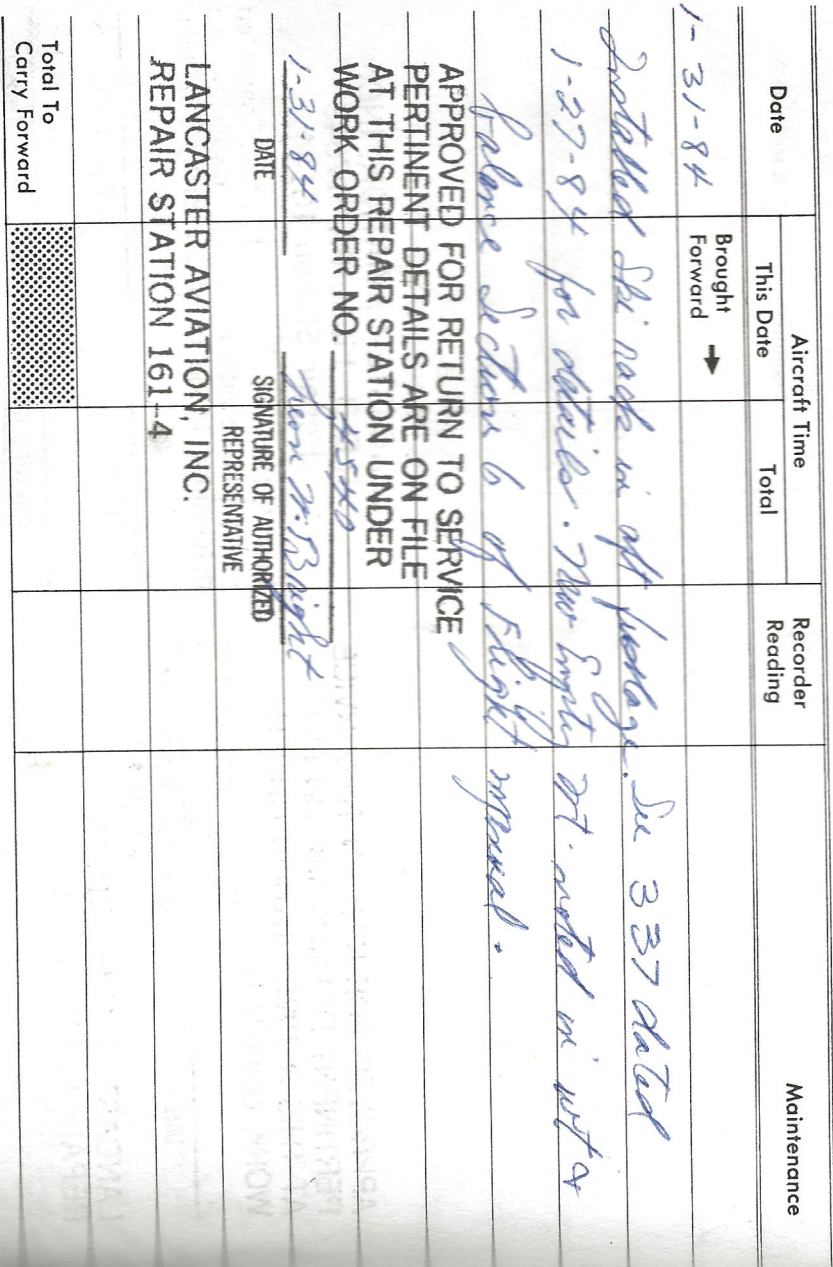 Date Aircraft Time Recorder Reading Maintenance
This Date Total
Brought Forward
1-31-84
Installed Ski rack in aft fuselage. See 337 dated
1-27-84 for details. New Empty wt. noted in wt &
balance Section 6 of Flight manual.
APPROVED FOR RETURN TO SERVICE
PERTINENT DETAILS ARE ON FILE
AT THIS REPAIR STATION UNDER
WORK ORDER NO.
1-31-84 Bright
DATE SIGNATURE OF AUTHORIZED
REPRESENTATIVE
LANCASTER AVIATION, INC.
REPAIR STATION 161-4
Total To
Carry Forward